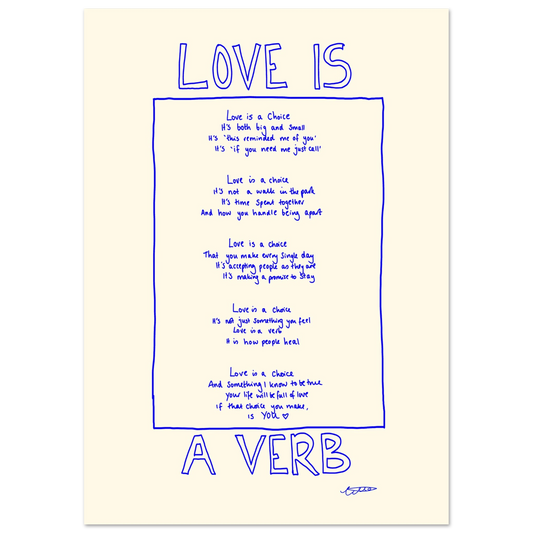 LOVE IS
Love is a Choice
It's both big and small
It's 'this reminded me of you'
It's 'if you need me just call'
Love is a choice
It's not a walk in the park
It's time spent together
And how you handle being apart
Love is a choice
That you make every single day
It's accepting people as they are
It's making a promise to stay
Love is a choice
It's not just something you feel
Love is a verb
It is how people heal
Love is a choice
And something I know to be true
your life will be full of love
if that choice you make,
is YOU ♡
A VERB